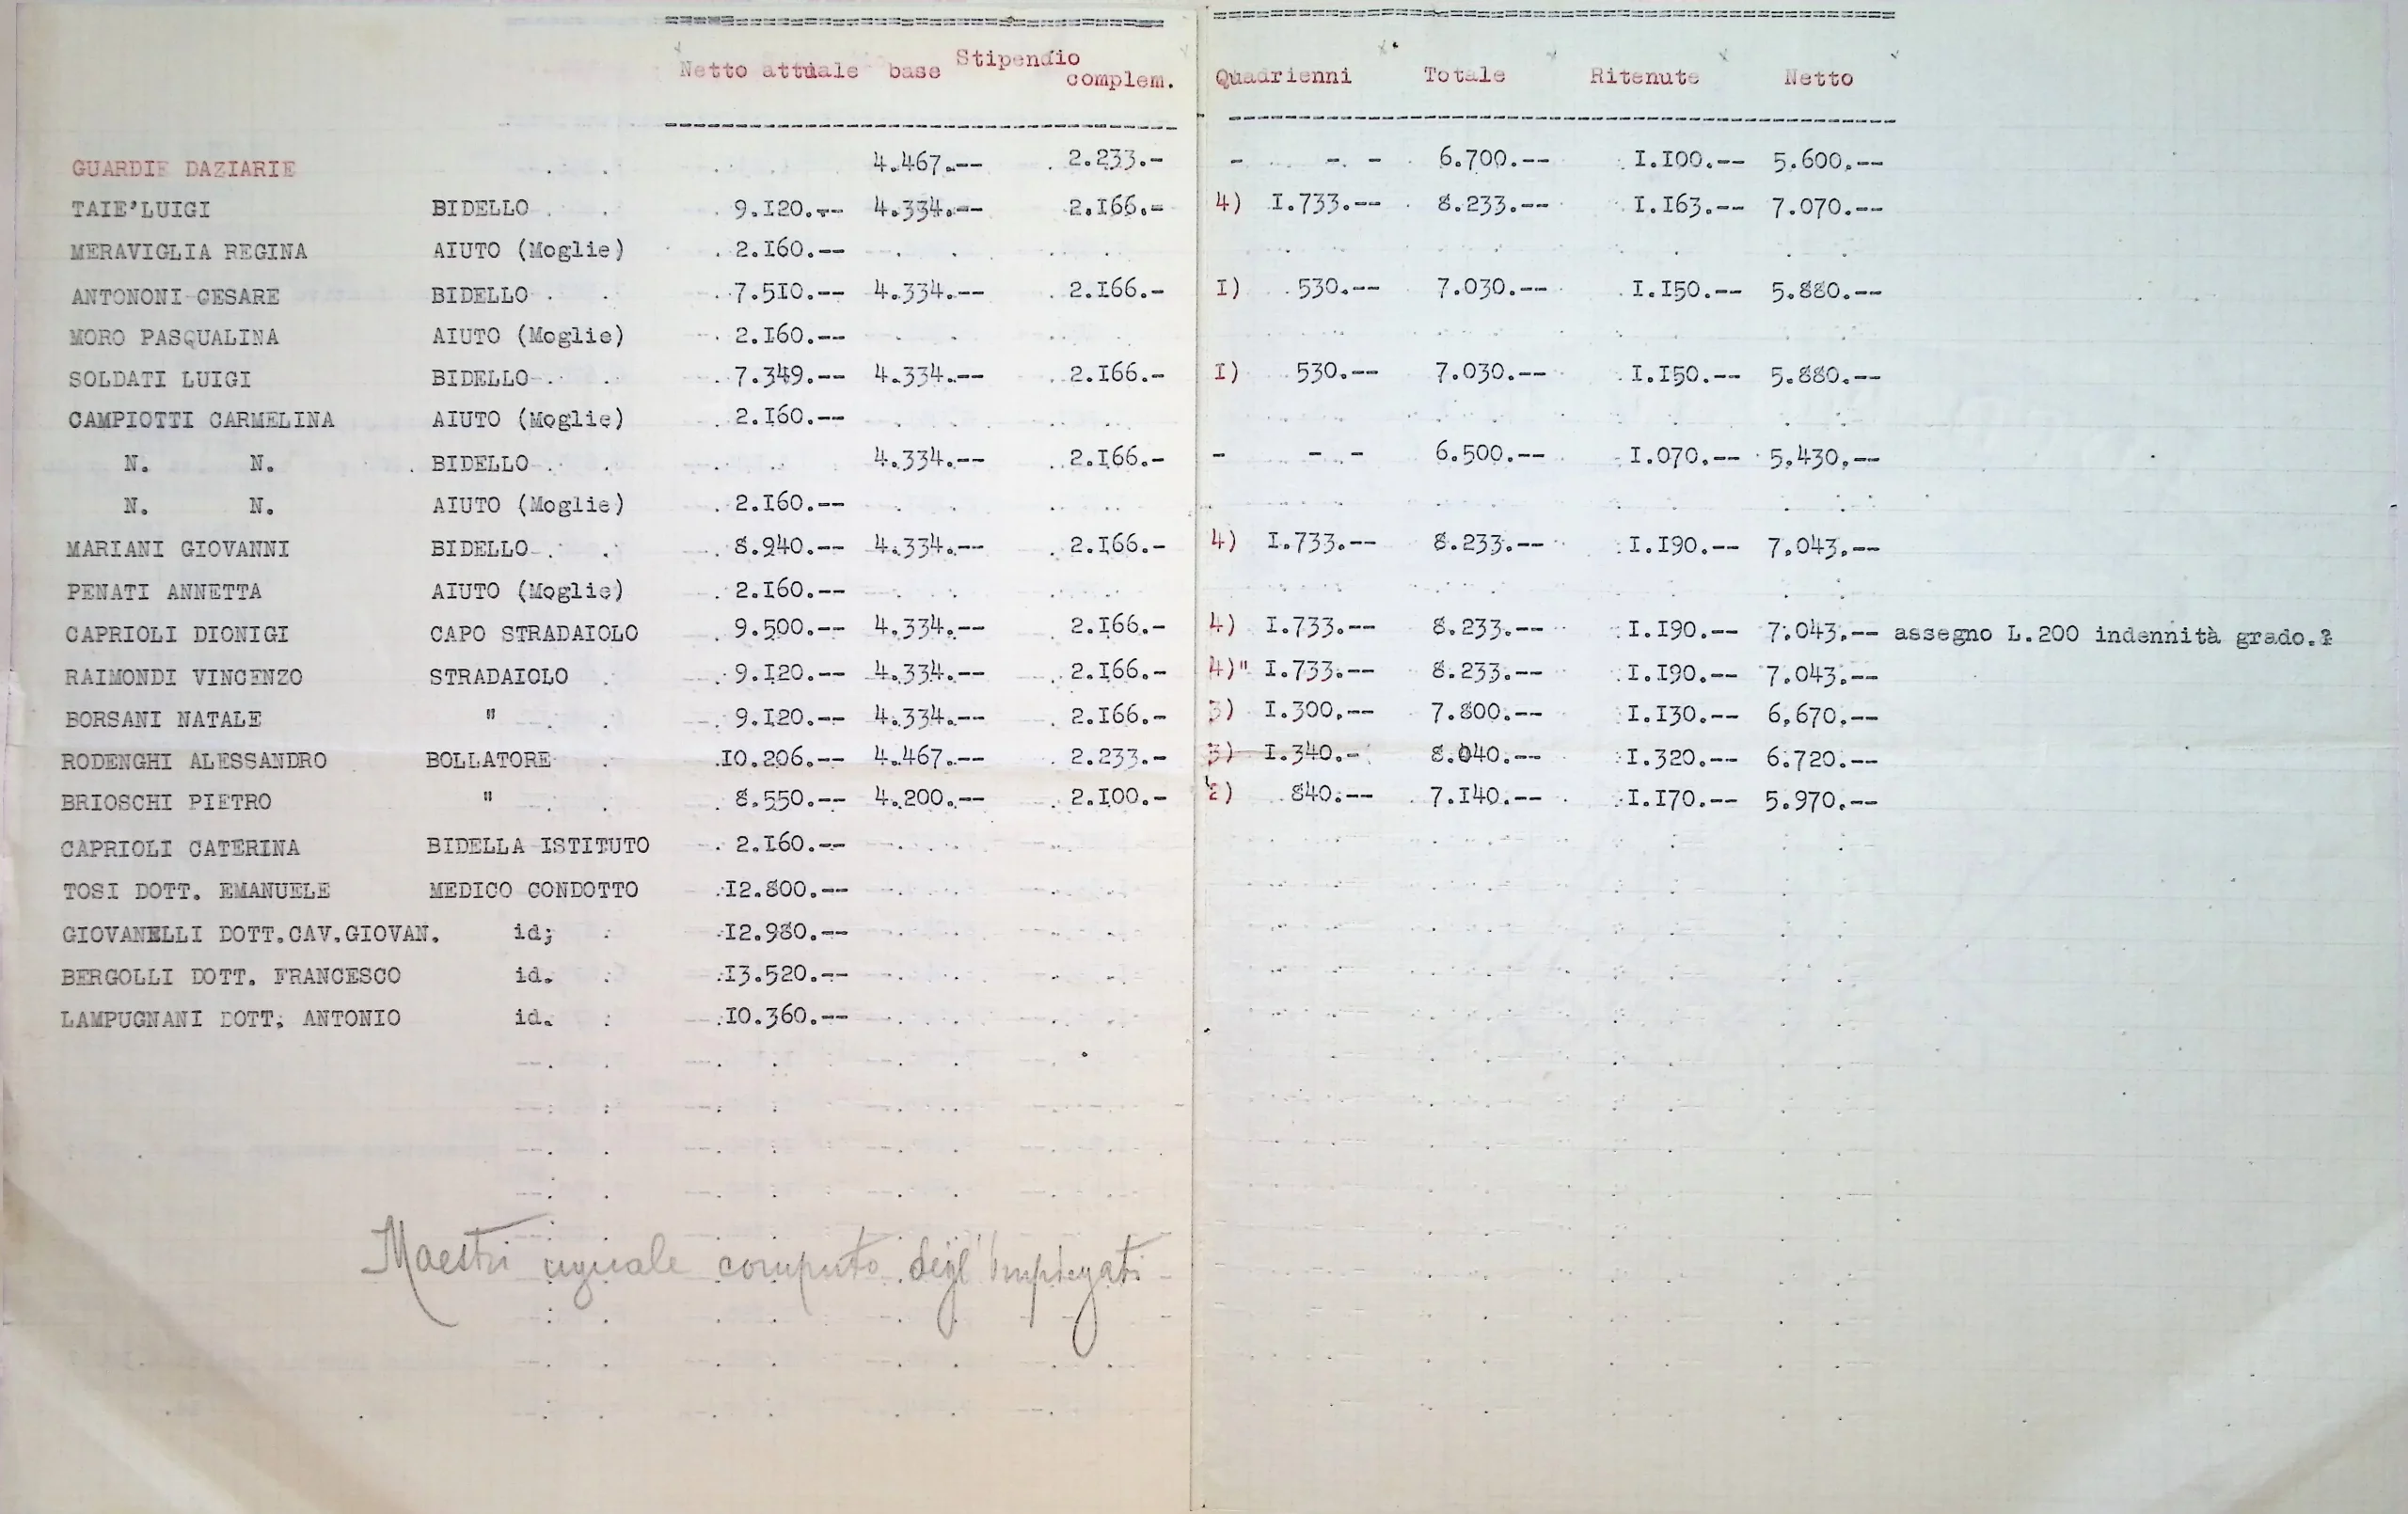 Netto attuale base Stipendio complem. Quadrienni Totale Ritenute Netto
GUARDIE DAZIARIE 4.467.-- 2.233.- - - - 6.700.-- I.I00.-- 5.600.--
TAIE'LUIGI BIDELLO 9.I20.-- 4.334.-- 2.I66.- 4) I.733.-- 8.233.-- I.I63.-- 7.070.--
MERAVIGLIA REGINA AIUTO (Moglie) 2.I60.--
ANTONONI CESARE BIDELLO 7.5I0.-- 4.334.-- 2.I66.- I) 530.-- 7.030.-- I.I50.-- 5.880.--
MORO PASQUALINA AIUTO (Moglie) 2.I60.--
SOLDATI LUIGI BIDELLO 7.349.-- 4.334.-- 2.I66.- I) 530.-- 7.030.-- I.I50.-- 5.880.--
CAMPIOTTI CARMELINA AIUTO (Moglie) 2.I60.--
N. N. BIDELLO 4.334.-- 2.I66.- - - - 6.500.-- I.070.-- 5.430.--
N. N. AIUTO (Moglie) 2.I60.--
MARIANI GIOVANNI BIDELLO 8.940.-- 4.334.-- 2.I66.- 4) I.733.-- 8.233.-- I.I90.-- 7.043.--
PENATI ANNETTA AIUTO (Moglie) 2.I60.--
CAPRIOLI DIONIGI CAPO STRADAIOLO 9.500.-- 4.334.-- 2.I66.- 4) I.733.-- 8.233.-- I.I90.-- 7.043.-- assegno L.200 indennità grado.?
RAIMONDI VINCENZO STRADAIOLO 9.I20.-- 4.334.-- 2.I66.- 4)" I.733.-- 8.233.-- I.I90.-- 7.043.--
BORSANI NATALE " 9.I20.-- 4.334.-- 2.I66.- 3) I.300.-- 7.800.-- I.I30.-- 6.670.--
RODENGHI ALESSANDRO BOLLATORE I0.206.-- 4.467.-- 2.233.- 3) I.340.- 8.040.-- I.320.-- 6.720.--
BRIOSCHI PIETRO " 8.550.-- 4.200.-- 2.I00.- 2) 840.-- 7.I40.-- I.I70.-- 5.970.--
CAPRIOLI CATERINA BIDELLA ISTITUTO 2.I60.--
TOSI DOTT. EMANUELE MEDICO CONDOTTO I2.800.--
GIOVANELLI DOTT.CAV.GIOVAN. id; I2.980.--
BERGOLLI DOTT. FRANCESCO id. I3.520.--
LAMPUGNANI DOTT; ANTONIO id. I0.360.--
Maestri uguale computo degl'Impiegati